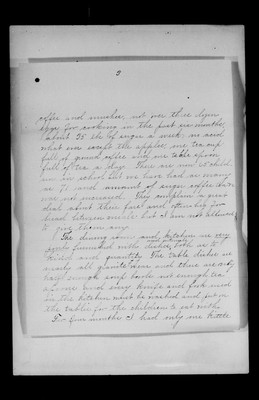 3
coffee and
eggs for cooking in the first six months,
about 25 lbs of sugar a week, no
what ever except the apples, one tea cup
full of ground coffee with one table spoon
full of tea a day. There are now 45 child
ren in school but we have had as many
as 71 and amount of sugar coffee &c
was not increased. They complain a great
deal about their food and often beg for
bread between meals but I am not allowed
to give them any.
The dining room and kitchen are very
poorly furnished with dishes, both as to
kind and quantity. The table dishes are
nearly all granite ware and there are not
enough soup bowls
and every knife and fork used
in the kitchen must be washed and put on
the table for the children to eat with.
For four months I had only one kettle